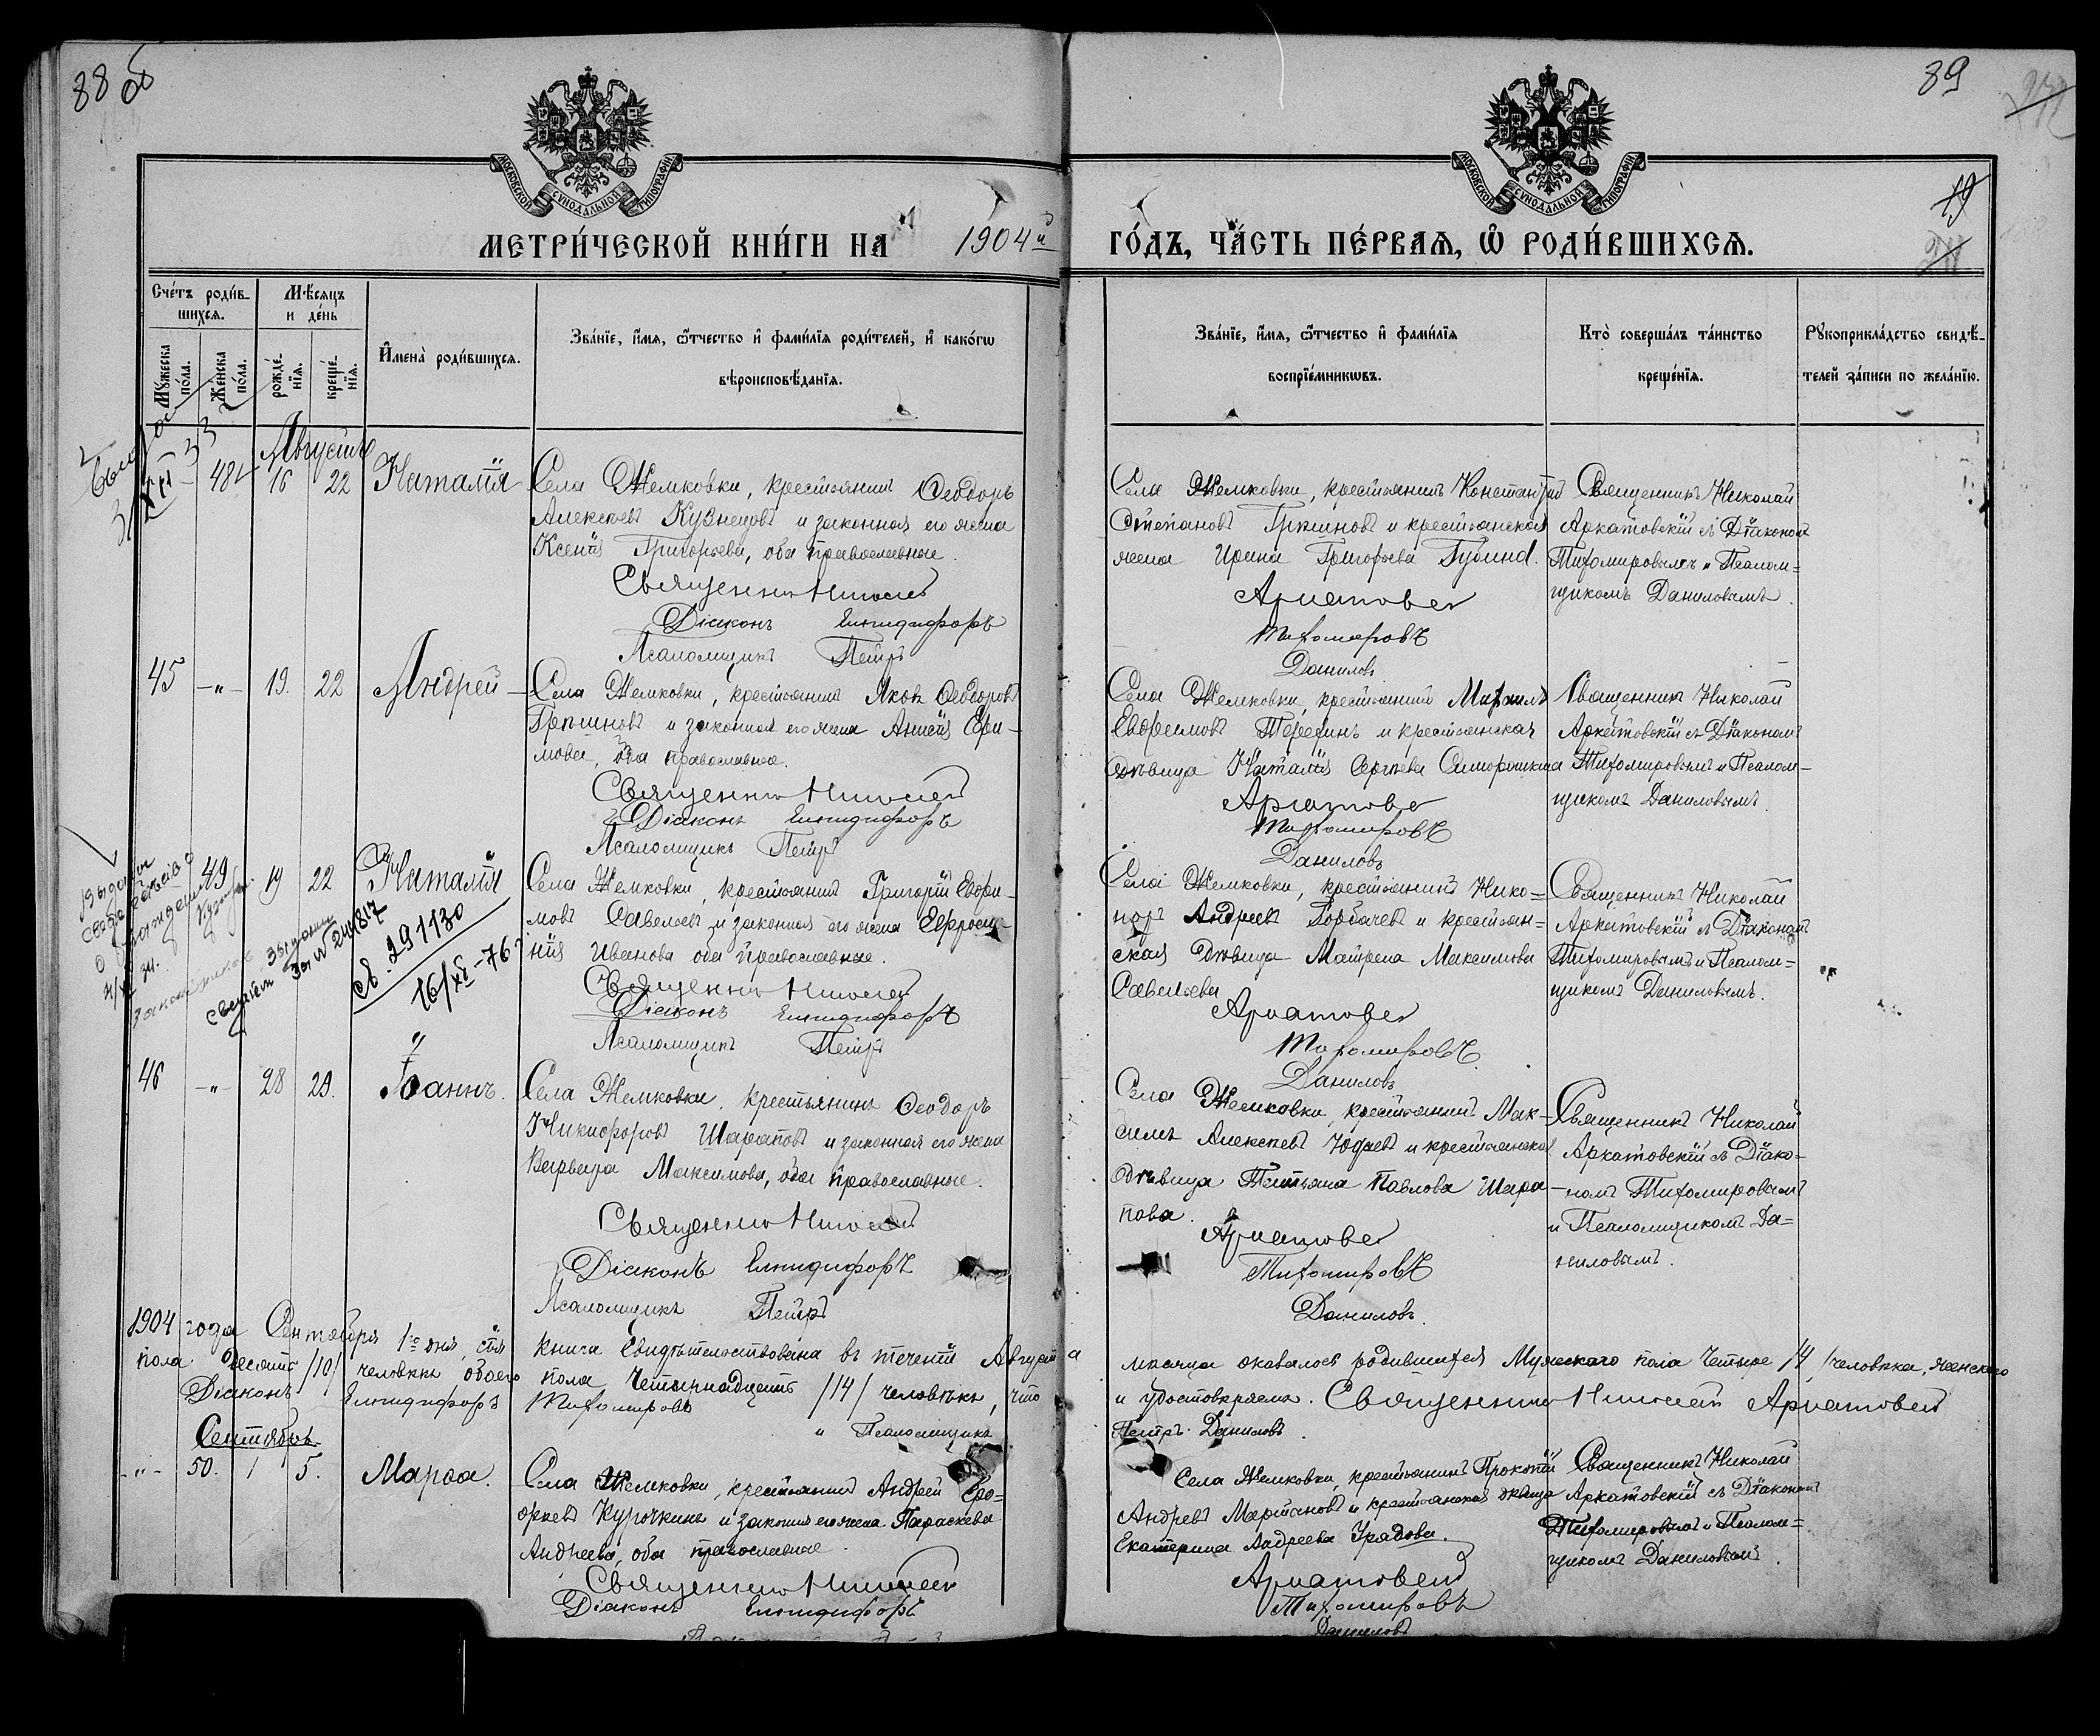 88 об
89
МОСКОВСКОЙ СУНОДАЛЬНОЙ ТИПОГРАФІИ
МОСКОВСКОЙ СУНОДАЛЬНОЙ ТИПОГРАФІИ
19
МЕТРИ́ЧЕСКОЙ КНИ́ГИ НА 1904й
ГО́ДЪ, ЧА́СТЬ ПЕ́РВАѦ, Ѡ РОДИ́ВШИХСѦ.
Сче́тъ роди́в-
шихсѧ.
Мꙋжеска по́ла.
Женска по́ла.
Мѣ́сѧцъ
и де́нь
рожде́нїѧ.
креще́нїѧ.
И҆мена̀ роди́вшихсѧ.
Зва́нїе, и҆́мѧ, ѻ҆́тчество и҆ фами́лїѧ роди́телей, и҆ како́гѡ
вѣроисповѣ́данїѧ.
Зва́нїе, и҆́мѧ, ѻ҆́тчество и҆ фами́лїѧ
воспрїе́мникѡвъ.
Кто̀ соверша́лъ та́инство
креще́нїѧ.
Рꙋкоприкла́дство свидѣ́-
телей за́писи по жела́нїю.
Августъ
48 16 22 Наталія
Села Жемковки, крестьянинъ Ѳеодоръ
Алексѣевъ Кузнецовъ и законная его жена
Ксенія Григорьева, оба православные.
Священникъ Николай
Діаконъ Елпидифоръ
Псаломщикъ Петръ
Села Жемковки, крестьянинъ Константинъ
Степановъ Гришновъ и крестьянская
жена Ирина Григорьева Губина.
Аркатовскій
Тихомировъ
Даниловъ
Священникъ Николай
Аркатовскій съ Діакономъ
Тихомировымъ и Псалом=
щикомъ Даниловымъ.
45 -"- 19. 22 Андрей
Села Жемковки, крестьянинъ Яковъ Ѳеодоровъ
Гришновъ и законная его жена Анисія Ефи-
мова, оба православные.
Священникъ Николай
Діаконъ Елпидифоръ
Псаломщикъ Петръ
Села Жемковки, крестьянинъ Михаилъ
Евфимовъ и крестьянская
дѣвица Наталія Сергѣева
Аркатовскій
Тихомировъ
Даниловъ
Священникъ Николай
Аркатовскій съ Діакономъ
Тихомировымъ и Псалом-
щикомъ Даниловымъ.
49 19 22 Наталія
Св. 291130
16/XI-76
Выдано
за № 244817
Села Жемковки, крестьянинъ Григорій Евфи-
мовъ Савельевъ и законная его жена Евфроси-
нія Иванова оба православные.
Священникъ Николай
Діаконъ Елпидифоръ
Псаломщикъ Петръ
Села Жемковки, крестьянинъ Нико=
норъ Андреевъ Горбачевъ и крестьян=
ская дѣвица Матрена Максимова
Савельева
Аркатовскій
Тихомировъ
Даниловъ
Священникъ Николай
Аркатовскій съ Діакономъ
Тихомировымъ и Псалом=
щикомъ Даниловымъ.
46 -"- 28 29. Іоаннъ.
Села Жемковки, крестьянинъ Ѳеодоръ
Никифоровъ Шараповъ и законная его жена
Варвара Максимова, оба православные.
Священникъ Николай
Діаконъ Елпидифоръ
Псаломщикъ Петръ
Села Жемковки, крестьянинъ Мак-
симъ Алексѣевъ и крестьянская
дѣвица Татьяна Павлова Шара-
пова.
Аркатовскій
Тихомировъ
Даниловъ.
Священникъ Николай
Аркатовскій съ Діако=
номъ Тихомировымъ
и Псаломщикомъ Да=
ниловымъ.
1904 года Сентября 1го дня, сія книга свидѣтельствована въ теченіи Августа мѣсяца оказалось родившихся Мужескаго пола четыре /4/ человѣка, женскаго
пола десять /10/ человѣкъ обоего пола четырнадцать /14/ человѣкъ, что и удостовѣряемъ. Священникъ Николай Аркатовскій
Діаконъ Елпидифоръ Тихомировъ и Псаломщикъ Петръ Даниловъ.
Сентябрь
-"- 50. 1 5. Марѳа.
Села Жемковки, крестьянинъ Андрей Его=
оріевъ Курочкинъ и законная его жена Параскева
Андреева, оба православные.
Священникъ Николай
Діаконъ Елпидифоръ
Села Жемковки, крестьянинъ Прокопій
Андреевъ Мартановъ и крестьянская дѣвица
Екатерина Андреева Урядова.
Аркатовскій
Тихомировъ
Даниловъ
Священникъ Николай
Аркатовскій съ Діакономъ
Тихомировымъ и Псалом=
щикомъ Даниловымъ.